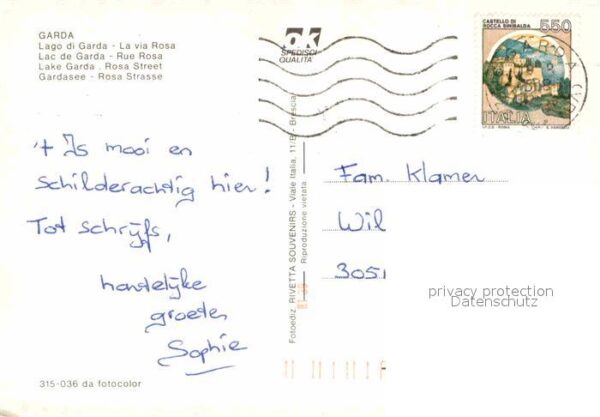 GARDA
Lago di Garda - La via Rosa
Lac de Garda - Rue Rosa
Lake Garda . Rosa Street
Gardasee - Rosa Strasse
't Is mooi en
schilderachtig hier!
Tot schrijfs,
hartelijke
groeten
Sophie
315-036 da fotocolor
ok
SPEDISCI
QUALITA'
Fotoediz. RIVETTA SOUVENIRS - Viale Italia, 11/B - Brescia
Riproduzione vietata
CASTELLO DI
ROCCA SINIBALDA
550
ITALIA
Fam. Klamer
Wil
3051
privacy protection
Datenschutz